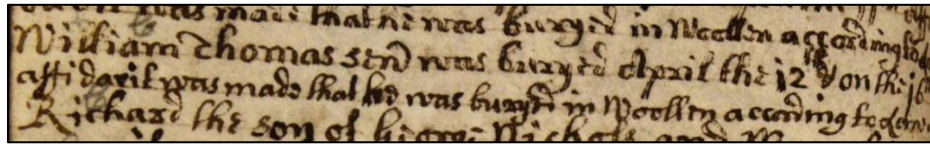 was made that he was buryed in Woollen according to
William Thomas sen was buryed April the 12th & on the 16
affidavit was made that hee was buryed in Woollen according to
Richard the son of Nichols and